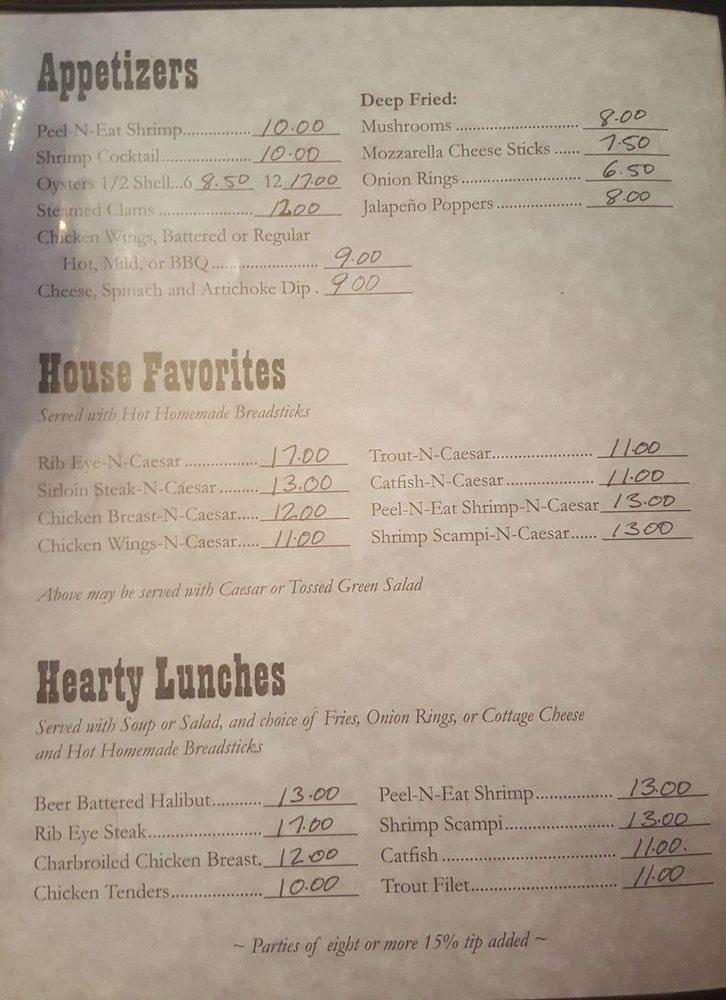 Appetizers
Peel-N-Eat Shrimp............... 10.00
Shrimp Cocktail.................... 10.00
Oysters 1/2 Shell...6 8.50 12 17.00
Steamed Clams .................... 12.00
Chicken Wings, Battered or Regular
Hot, Mild, or BBQ....................... 9.00
Cheese, Spinach and Artichoke Dip . 9 00
Deep Fried:
Mushrooms ............................ 8.00
Mozzarella Cheese Sticks ...... 7.50
Onion Rings........................... 6.50
Jalapeño Poppers................... 8.00
House Favorites
Served with Hot Homemade Breadsticks
Rib Eye-N-Caesar ................. 17.00
Sirloin Steak-N-Caesar ......... 13.00
Chicken Breast-N-Caesar..... 12.00
Chicken Wings-N-Caesar..... 11.00
Trout-N-Caesar....................... 11.00
Catfish-N-Caesar .................... 11.00
Peel-N-Eat Shrimp-N-Caesar 13.00
Shrimp Scampi-N-Caesar...... 13 00
Above may be served with Caesar or Tossed Green Salad
Hearty Lunches
Served with Soup or Salad, and choice of Fries, Onion Rings, or Cottage Cheese
and Hot Homemade Breadsticks
Beer Battered Halibut........... 13.00
Rib Eye Steak......................... 17.00
Charbroiled Chicken Breast. 12.00
Chicken Tenders..................... 10.00
Peel-N-Eat Shrimp................. 13.00
Shrimp Scampi........................ 13.00
Catfish ...................................... 11.00.
Trout Filet................................ 11.00
~ Parties of eight or more 15% tip added ~